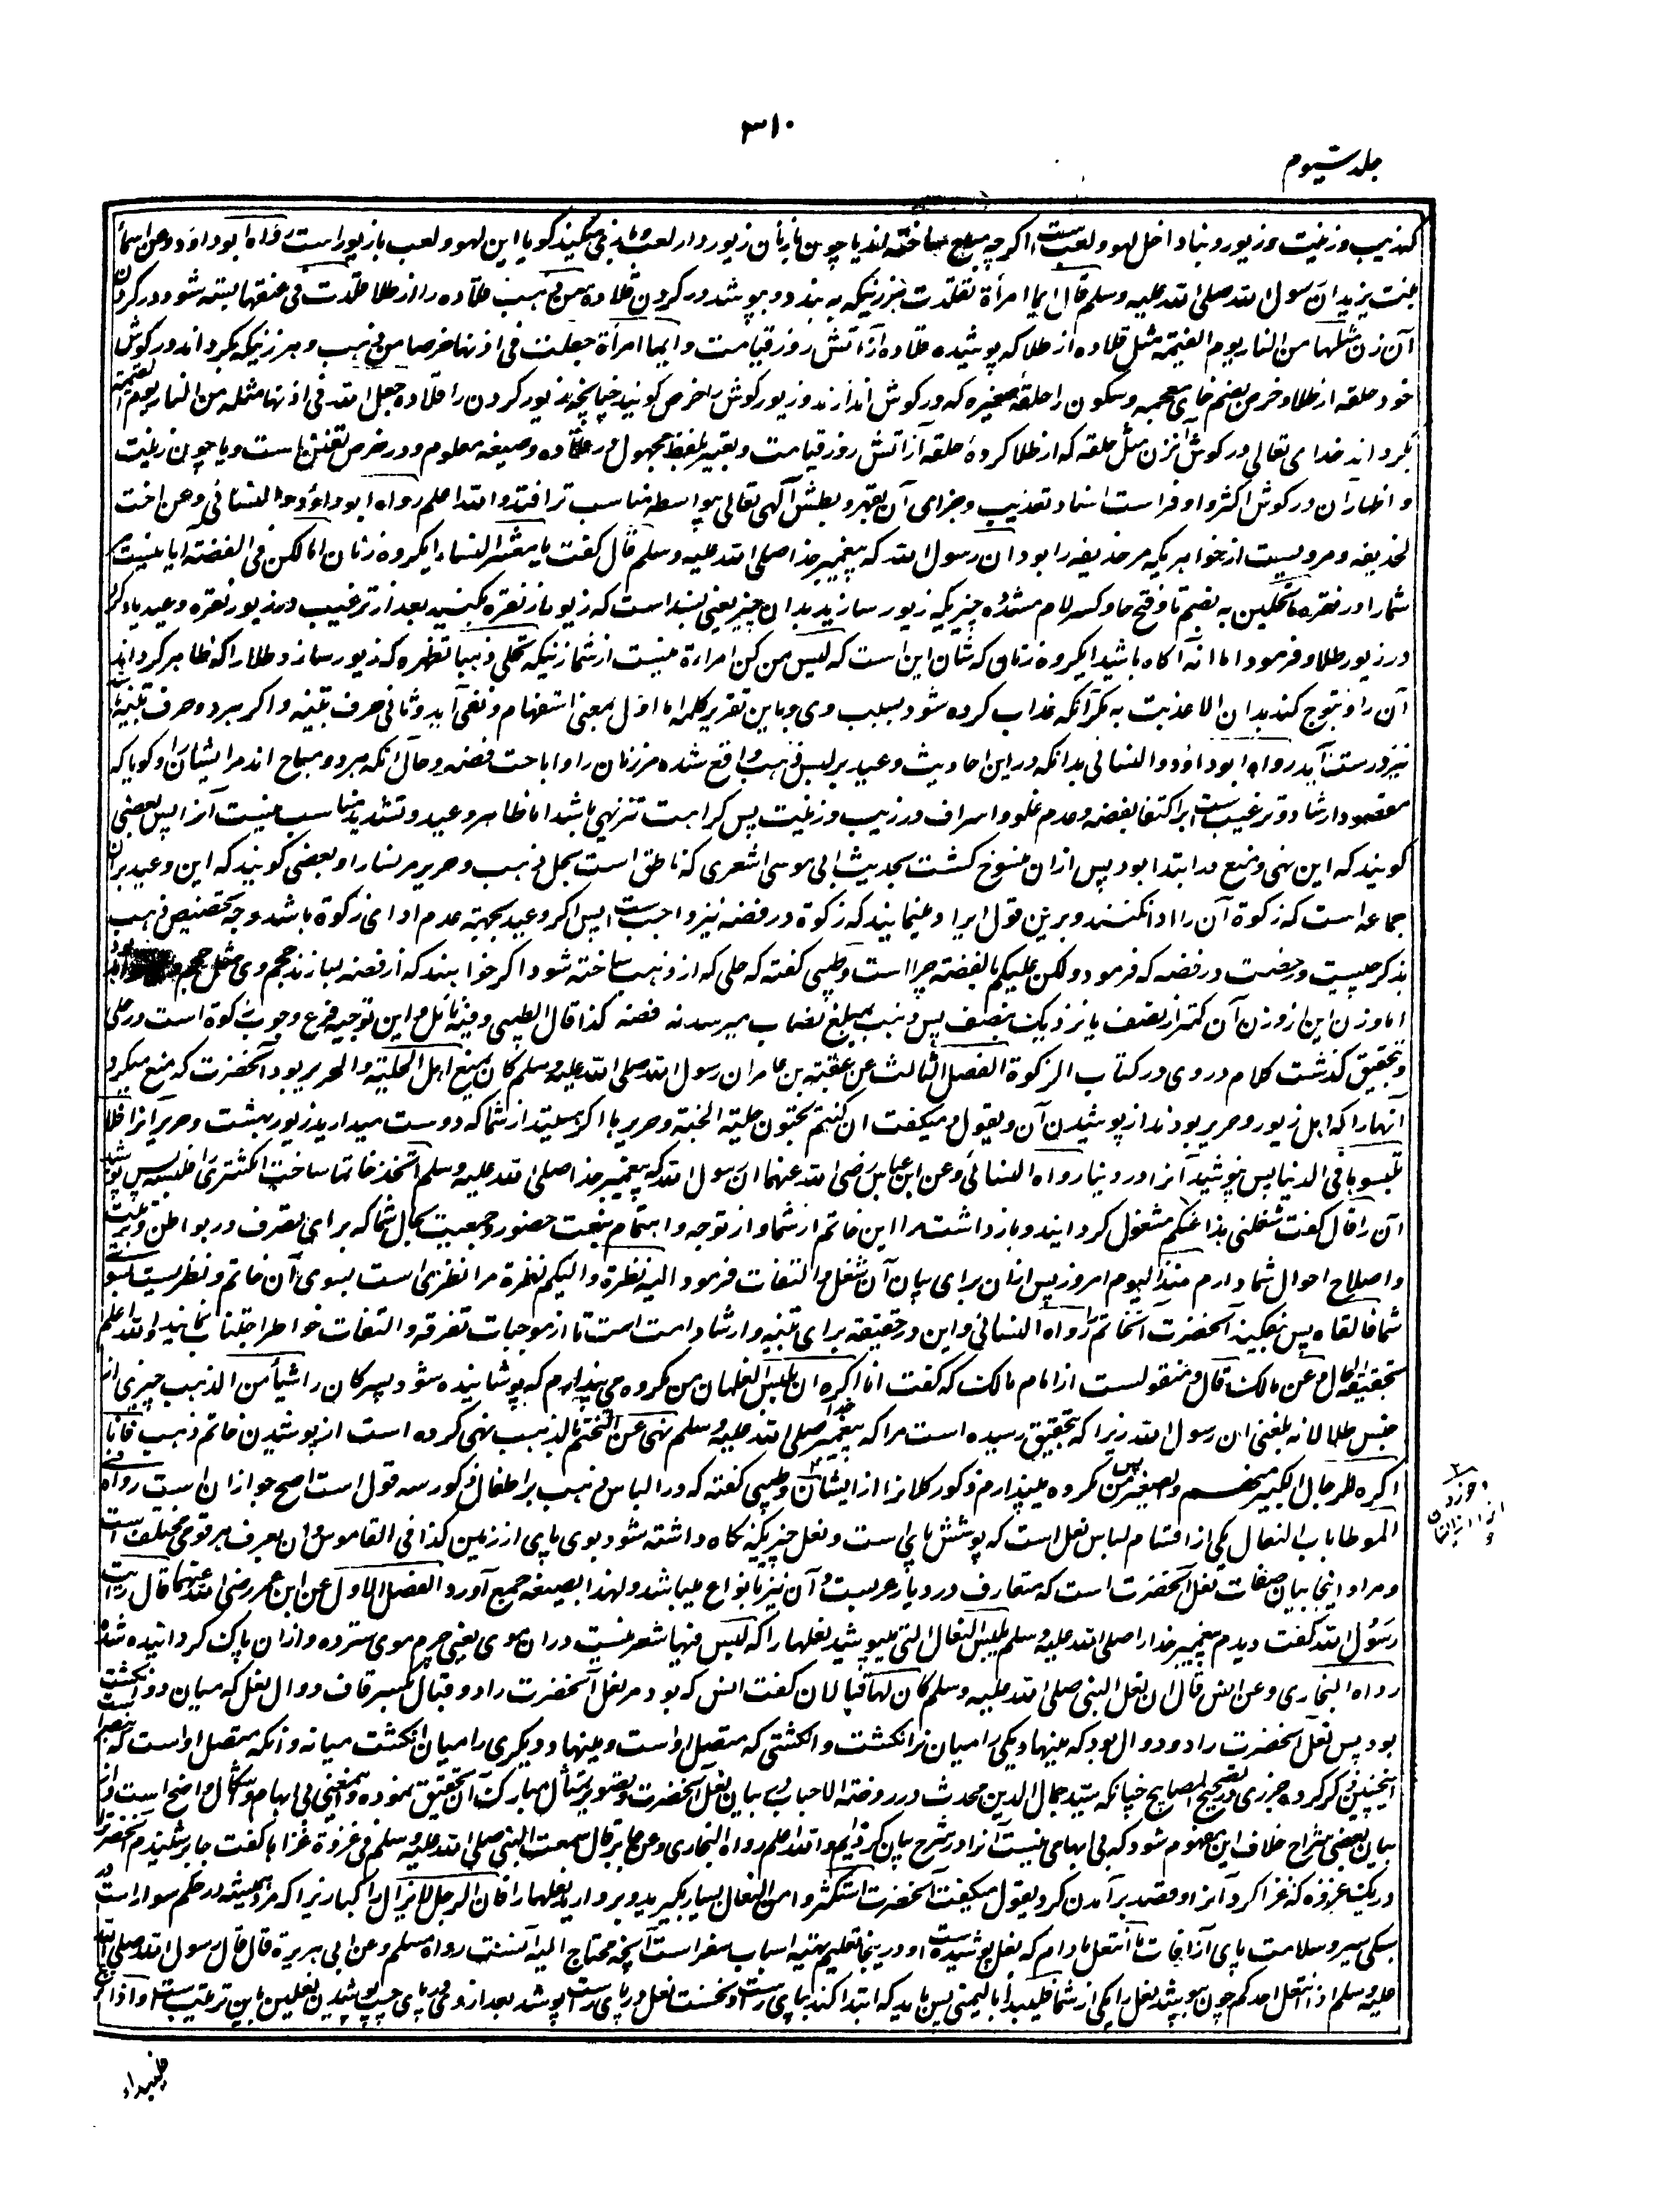 ۳۱۰
جلد سیوم
که زیب و زینت و زیور دنیا داخل لهو و لعب ست اگرچه مباح ساخته اند یا چون نازنان زیور دار لعب و بازی میکنند گویا این لهو و لعب با زیور است رواه ابوداود وعن اسماء
بنت یزید ان رسول الله صلی الله علیه وسلم قال ایما امرأة تقلدت هر زنیکه به بندد و بپوشد در گردن قلادة من ذهب قلاده را از طلا قلدت فی عنقها بسته شود در گردن
آن زن مثلها من النار یوم القیمة مثل قلاده از طلا که پوشیده قلاده از آتش روز قیامت وایما امرأة جعلت فی اذنها خرصا من ذهب و هر زنیکه بگرداند در گوش
خود حلقه از طلا و خرص بضم خای معجمه و سکون را حلقه صغیره که در گوش اندازند و زیور گوش را خرص گویند چنانچه زیور گردن را قلاده جعل الله فی اذنها مثله من النار یوم القیمة
بگرداند خدای تعالی در گوش آنزن مثل حلقه که از طلا کرده حلقه از آتش روز قیامت و تعبیر بلفظ مجهول در قلاده و صیغه معلوم در خرص تفنن است و یا چون زینت
و اظهار آن در گوش اکثر و اوفر است اسناد تعذیب و جزای آن بقهر و بطش الهی تعالی بیواسطه مناسب تر افتد والله اعلم رواه ابوداود والنسائی وعن اخت
لحذیفه و مرویست از خواهریکه مر حذیفه را بود ان رسول الله که پیغمبر خدا صلی الله علیه وسلم قال گفت یا معشر النساء ایگروه زنان امالکن فی الفضة آیا نیست
شما را در نقره ماتحلین به بضم تا و فتح حا و کسر لام مشدده چیزیکه زیور سازید بدان چیز یعنی بسند است که زیورها از نقره بکنید بعد از ترغیب در زیور نقره وعید یاد کرد
در زیور طلا و فرمود اما انه آگاه باشید ایگروه زنان که شان این است که لیس منکن امراة نیست از شما زنیکه تحلی ذهبا تظهره که زیور سازد طلا را که ظاهر گرداند
آن را و تبرج کند بدان الا عذبت به مگر آنکه عذاب کرده شود بسبب وی و باین تقریر کلمه اما اول بمعنی استفهام و نفی آید و ثانی حرف تنبیه و اگر هر دو حرف تنبیه باشد
نیز درست آید رواه ابوداؤد والنسائی بدانکه در این احادیث وعید بر لبس ذهب واقع شده مر زنان را و اباحت فضه و حال آنکه هر دو مباح اند مر ایشان را و گویا که
مقصود ارشاد و ترغیب ست بر اکتفا بفضه و عدم غلو و اسراف در زیب و زینت پس کراهت تنزیهی باشد اما ظاهر وعید و تشدید مناسب نیست آنرا پس بعضی
گویند که این نهی و منع در ابتدا بود پس ازان منسوخ گشت بحدیث ابی موسی اشعری که ناطق است بحل ذهب و حریر مر نسا را و بعضی گویند که این وعید بران
جماعه است که زکوة آن را ادا نکنند و برین قول ایراد مینمایند که زکوة در فضه نیز واجب ست پس اگر وعید بجهة عدم ادای زکوة باشد وجه تخصیص ذهب
بذکر چیست و رخصت در فضه که فرمود ولکن علیکم بالفضة چرا است و طیبی گفته که حلی که از ذهب ساخته شود اگر خواهند که از فضه بسازند حجم وی مثل حجم
اما وزن این از وزن آن کمتر از نصف یا نزدیک بنصف پس ذهب بمبلغ نصاب میرسد نه فضه کذا قال الطیبی وفیه تأمل و این توجیه فرع وجوب زکوة است در حلی
و تحقیق گذشت کلام در وی در کتاب الزکوة الفصل الثالث عن عقبة بن عامر ان رسول الله صلی الله علیه وسلم کان یمنع اهل الحلیة والحریر بود آنحضرت که منع میکرد
آنها را که اهل زیور و حریر بودند از پوشیدن آن ویقول و میگفت ان کنتم تحبون حلیة الجنة وحریرها اگر هستید از شما که دوست میدارید زیور بهشت و حریر آنرا فلا
تلبسوها فی الدنیا پس نپوشید آنرا در دنیا رواه النسائی وعن ابن عباس رضی الله عنهما ان رسول الله که پیغمبر خدا صلی الله علیه وسلم اتخذ خاتما ساخت انگشتری را فلبسه پس پوشید
آن را قال گفت شغلنی هذا عنکم مشغول گردانید و بازداشت مرا این خاتم از شما و از توجه و اهتمام بنعت حضور و جمعیت بحال شما که برای تصرف در بواطن و تربیت
و اصلاح احوال شما دارم منذ الیوم امروز پس ازان برای بیان آن شغل و التفات فرمود الیه نظرة والیکم نظرة مرا نظری است بسوی آن خاتم و نظریست بسوی
شما فالقاه پس بیفگند آنحضرت آنخاتم را رواه النسائی و این در حقیقه برای تنبیه و ارشاد امت است تا از موجبات تفرقه و التفات خواطر اجتناب نمایند والله اعلم
بحقیقة الحال وعن مالک قال و منقولست از امام مالک که گفت انا اکره ان یلبس الغلمان من مکروه می پندارم که پوشانیده شود پسرکان را شیأ من الذهب چیزی از
جنس طلا لانه بلغنی ان رسول الله زیرا که بتحقیق رسیده است مرا که پیغمبر خدا صلی الله علیه وسلم نهی عن التختم بالذهب نهی کرده است از پوشیدن خاتم ذهب فانا
اکره للرجال الکبیر منهم والصغیر پس من مکروه میپندارم ذکور کلانرا از ایشان و طیبی گفته که در الباس ذهب بر اطفال ذکور سه قول است اصح جواز ان است رواه فی
الموطا باب النعال یکی از اقسام لباس نعل است که پوشش پای است و نعل چیزیکه نگاه داشته شود بوی پای از زمین کذا فی القاموس و ان بعرف هر قومی مختلف است
و مراد اینجا بیان صفات نعل آنحضرت است که متعارف در دیار عربست و آن نیز بانواع میباشد ولهذا بصیغه جمع آورد الفصل الاول عن ابن عمر رضی الله عنهما قال رایت
رسول الله گفت دیدم پیغمبر خدا را صلی الله علیه وسلم یلبس النعال التی میپوشید نعلها را که لیس فیها شعر نیست دران موی یعنی چرم موی سترده و ازان پاک گردانیده شده
رواه البخاری وعن انس قال ان نعل النبی صلی الله علیه وسلم کان لها قبالان گفت انس که بود مر نعل آنحضرت را دو قبال بکسر قاف دوال نعل که میان دو انگشت است
بود پس نعل آنحضرت را دو دوال بود که مینهاد یکی را میان نر انگشت و انگشتی که متصل اواست و مینهاد دیگری را میان انگشت میانه و آنکه متصل اواست که بنصر است
اینچنین ذکر کرده جزری در تصحیح المصابیح چنانکه سید جمال الدین محدث در روضة الاحباب بیان نعل آنحضرت و تصویر تمثال مبارک آن تحقیق نموده و بمعنی بی ابهام و اشکال واضح است و از
بیان بعضی شراح خلاف این مفهوم شود که بی ابهامی نیست آنرا در شرح بیان کرده ایم والله اعلم رواه البخاری وعن جابر قال سمعت النبی صلی الله علیه وسلم فی غزوة غزاها گفت جابر شنیدم آنحضرت را
در یک غزوه که غزا کرد آنرا و قصد برآمدن کرد یقول میگفت آنحضرت استکثروا من النعال بسیار بگیرید و بردارید نعلها را فان الرجل لایزال راکبا زیرا که مرد همیشه در حکم سوار است
سبکی سیر و سلامت پای از آفات ما انتعل مادام که نعل پوشیده ست او درینجا تعلیم تهیه اسباب سفر است آنچه محتاج الیه آنست رواه مسلم وعن ابی هریرة قال قال رسول الله صلی الله
علیه وسلم اذا انتعل احدکم چون بپوشد نعل را یکی از شما فلیبدأ بالیمنی پس باید که ابتدا کند بپای راست و نخست نعل در پای راست پوشد بعد ازو در پای چپ پوشیدن نعلین باین ترتیب ست واذا نزع
فلیبدأ